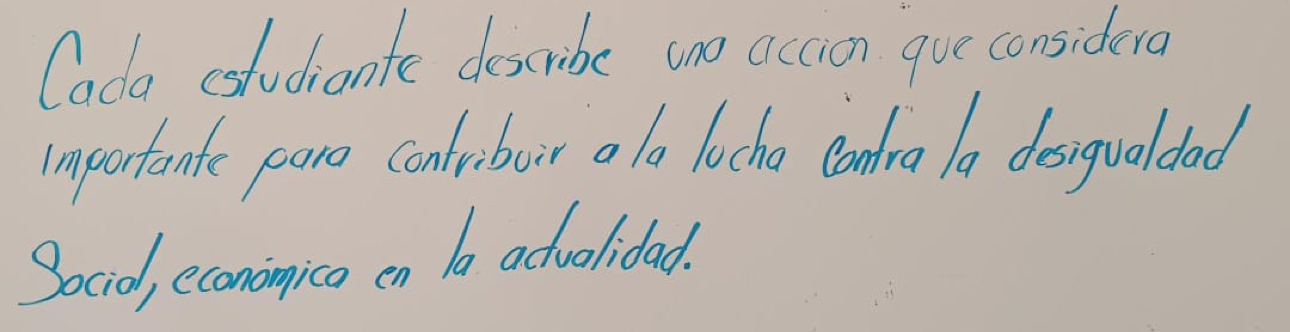 Cada estudiante describe una acción que considera
importante para contribuir a la lucha contra la desigualdad
Social, económica en la actualidad.